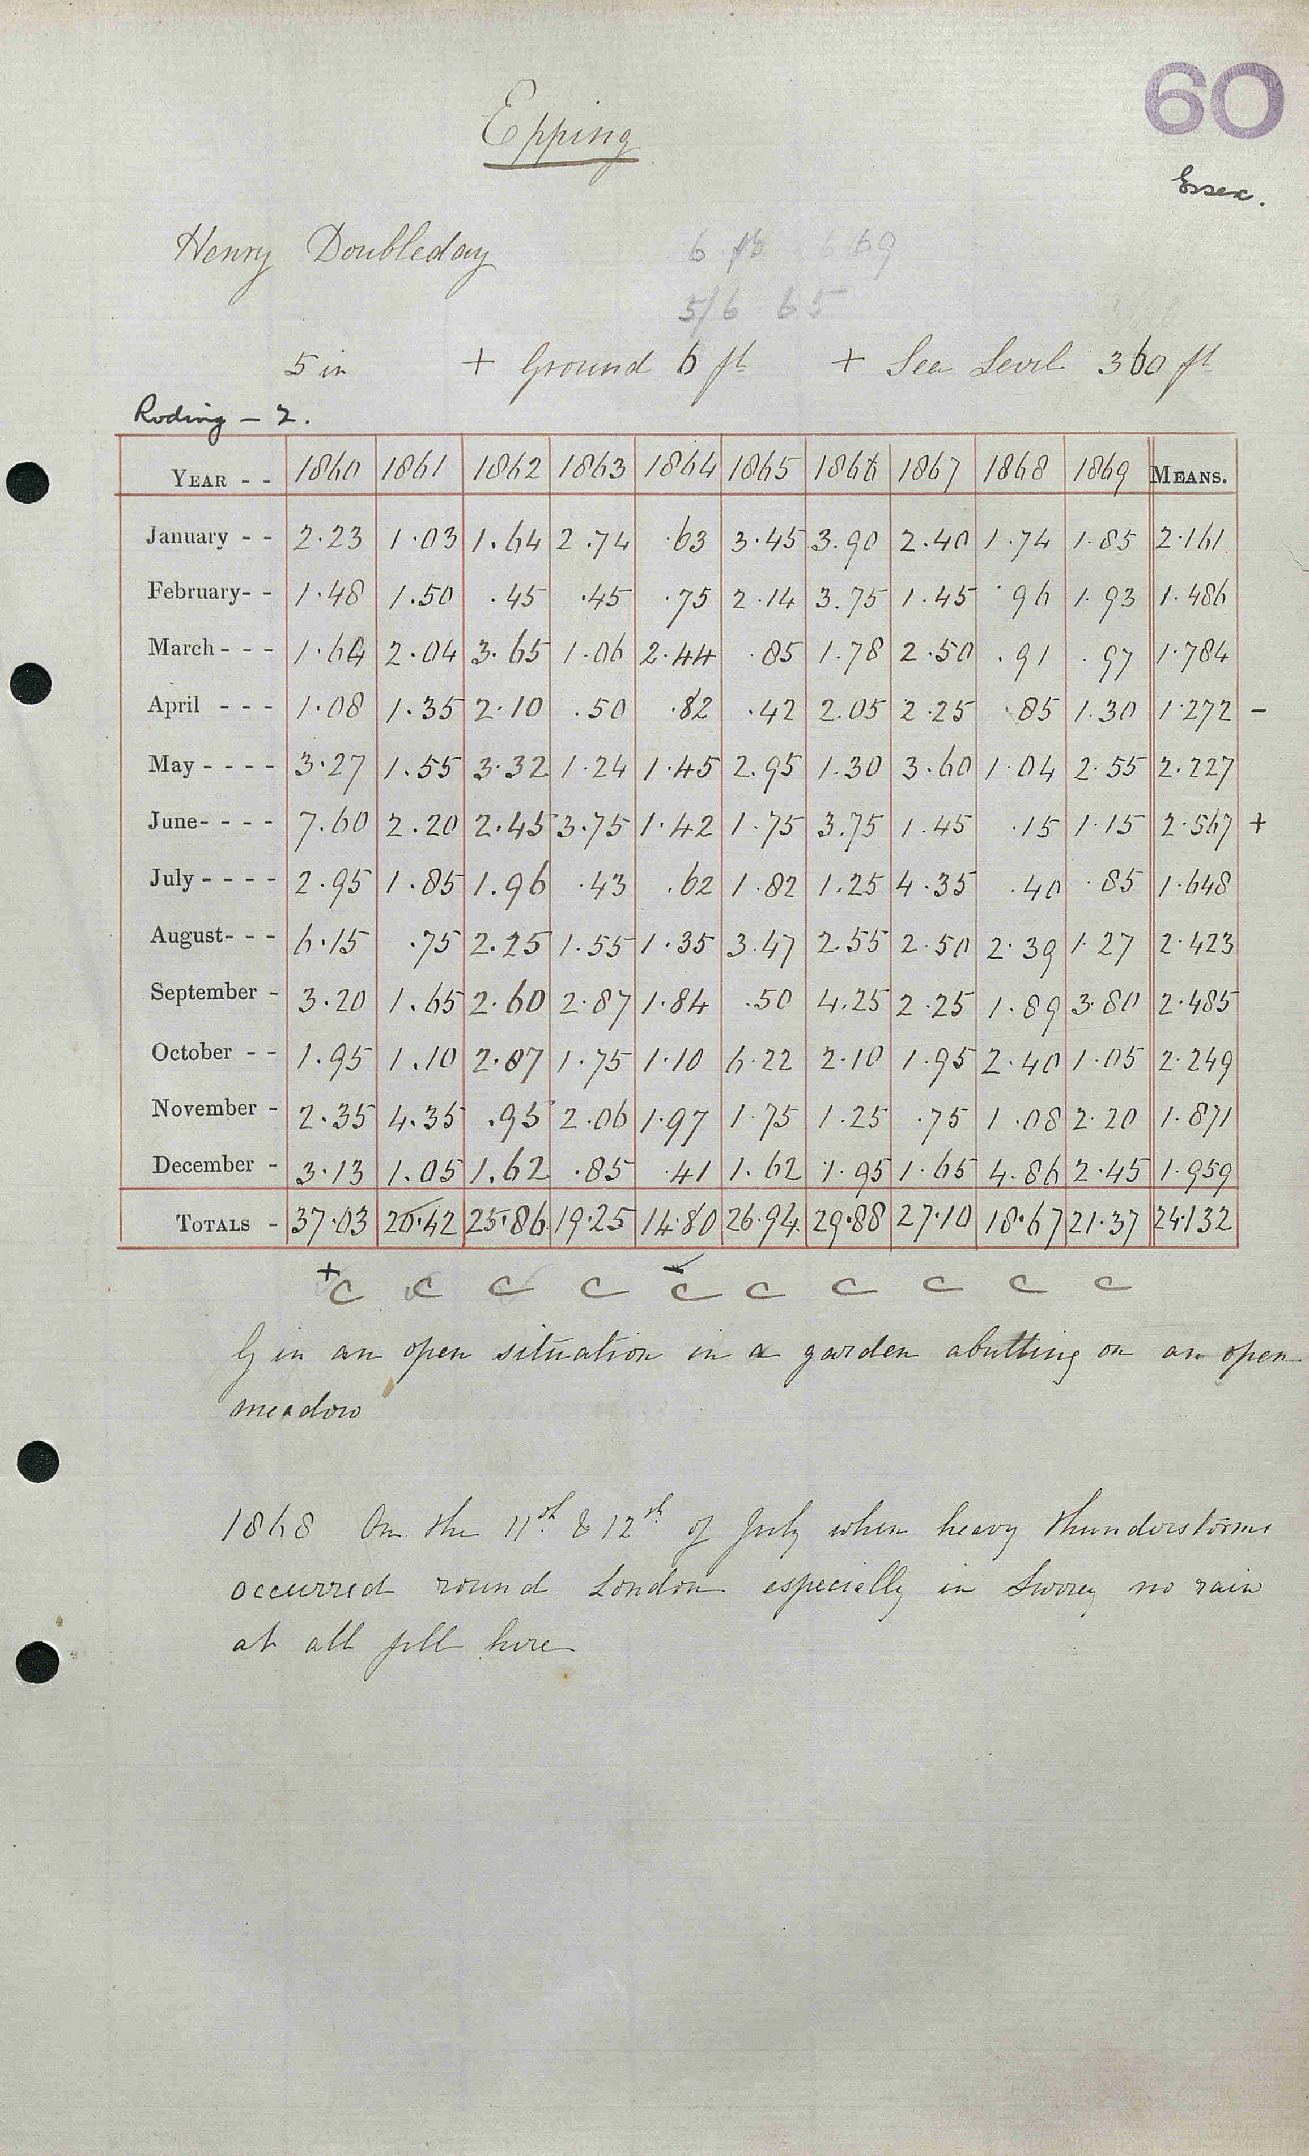 60
Epping
Essex.
Henry Doubleday
6 ft 6 69
5/6 65
5 in + Ground 6 ft + Sea Level 360 ft
Roding - 2.
YEAR - - 1860 1861 1862 1863 1864 1865 1866 1867 1868 1869 MEANS.
January - - 2.23 1.03 1.64 2.74 .63 3.45 3.90 2.40 1.74 1.85 2.161
February- - 1.48 1.50 .45 .45 .75 2.14 3.75 1.45 .96 1.93 1.486
March - - - 1.64 2.04 3.65 1.06 2.44 .85 1.78 2.50 .91 .97 1.784
April - - - 1.08 1.35 2.10 .50 .82 .42 2.05 2.25 .85 1.30 1.272 -
May - - - - 3.27 1.55 3.32 1.24 1.45 2.95 1.30 3.60 1.04 2.55 2.227
June- - - - 7.60 2.20 2.45 3.75 1.42 1.75 3.75 1.45 .15 1.15 2.567 +
July - - - - 2.95 1.85 1.96 .43 .62 1.82 1.25 4.35 .40 .85 1.648
August- - - 6.15 .75 2.25 1.55 1.35 3.47 2.55 2.50 2.39 1.27 2.423
September - 3.20 1.65 2.60 2.87 1.84 .50 4.25 2.25 1.89 3.80 2.485
October - - 1.95 1.10 2.87 1.75 1.10 6.22 2.10 1.95 2.40 1.05 2.249
November - 2.35 4.35 .95 2.06 1.97 1.75 1.25 .75 1.08 2.20 1.871
December - 3.13 1.05 1.62 .85 .41 1.62 1.95 1.65 4.86 2.45 1.959
TOTALS - 37.03 20.42 25.86 19.25 14.80 26.94 29.88 27.10 18.67 21.37 24.132
+ C C C C - C C C C C C
G in an open situation in a garden abutting on an open
meadow
1868 On the 11th & 12th of July when heavy thunderstorms
occurred round London especially in Surrey no rain
at all fell here